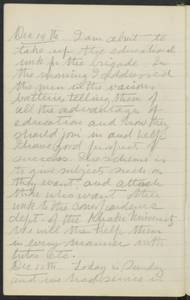 Dec 14th. I am about to
take up the educational
work for the brigade. In
the morning I addressed
the men in the various
batteries, telling them of
all the advantages of
education and how they
should join in and help
have good prospect of
success. The scheme is
to give subject such as
they want and attach
those who want other
work to the correspondence
dept. of the Khaki University
We will then help them
in every manner with
books Etc.
Dec 15th. Today is Sunday
and